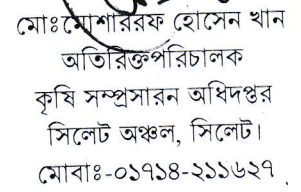 মোঃ মোশাররফ হোসেন খান
অতিরিক্তপরিচালক
কৃষি সম্প্রসারন অধিদপ্তর
সিলেট অঞ্চল, সিলেট।
মোবাঃ-০১৭১৪-২১১৬২৭